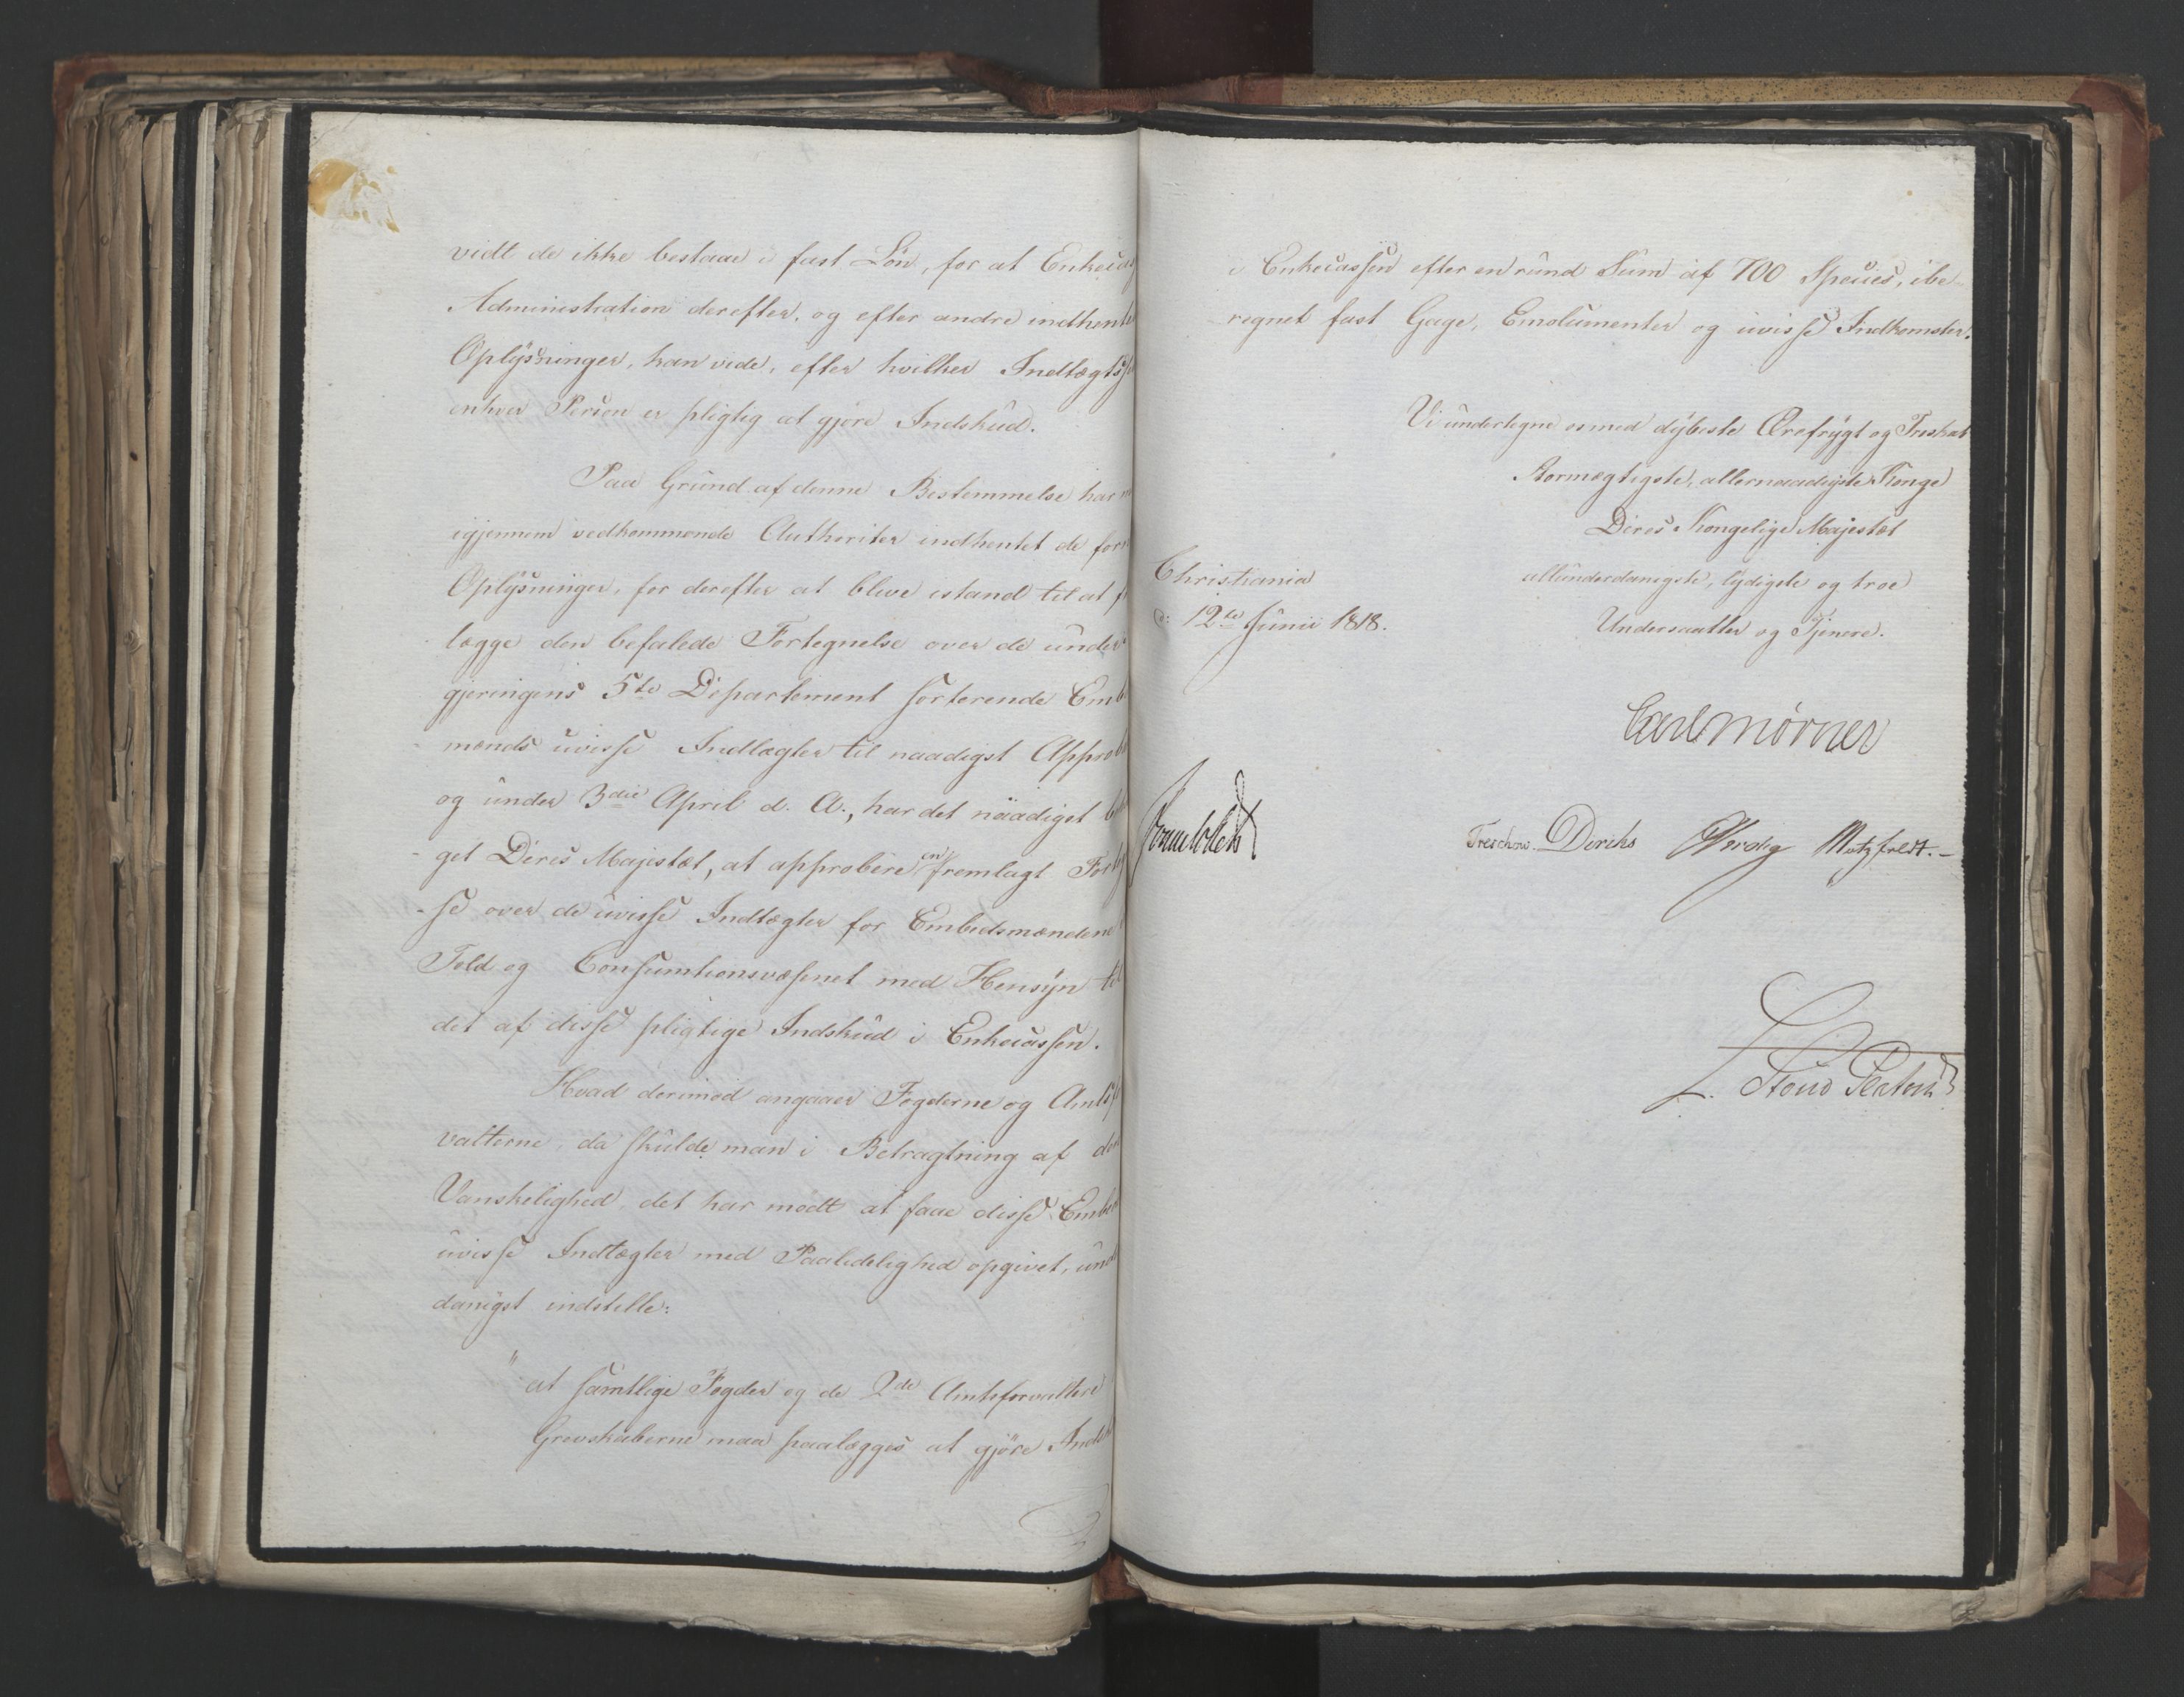 vidt de ikke bestaae i fast Løn, for at Enkecas
Administration derefter, og efter andre indhente
Oplysninger, kan vide, efter hvilken Indtægtss
enhver Person er pligtig at gjøre Indskud.
Paa Grund af denne Bestemmelse har
igjennem vedkommende Authoriter indhentet de for
Oplysninger, for derefter at blive istand til at f
lægge den befalede Fortegnelse over de under
gjeringens 5te Departement sorterende Emb
mænds uvisse Indtægter til naadigst Approb
og under 3die April d. A., har det naadigst b
get Deres Majestæt, at approbere en fremlagt Forteg
-se over de uvisse Indtægter for Embedsmændene
Told og Consumtionsvæsnet med Hensyn til
det af disse pligtige Indskud i Enkecassen.
Hvad derimod angaaer Fogderne og Amtsf
valterne, da skulde man i Betragtning af den
Vanskelighed, det har mødt at faae disse Embe
uvisse Indtægter med Paalidelighed opgivet, und
danigst indstille:
" at samtlige Fogder og de 2de Amtsforvaltere
Grevskaberne maa paalægges at gjöre Indsk
i Enkecassen efter en rund Sum af 700 Species, ibe-
regnet fast Gage, Emolumenter og uvisse Indkomster.
Vi undertegne os med dybeste Ærefrygt og Troskab
Stormægtigste, allernaadigste Konge
Deres Kongelige Majestæt
allunderdanigste, lydigste og troe
Undersaatter og Tjenere.
Christiania
d: 12te Junii 1818.
Carl Mörner
Sommerhielm
Treschow. Diriks Hvedig Motzfeldt.-
L. Stoud Platou